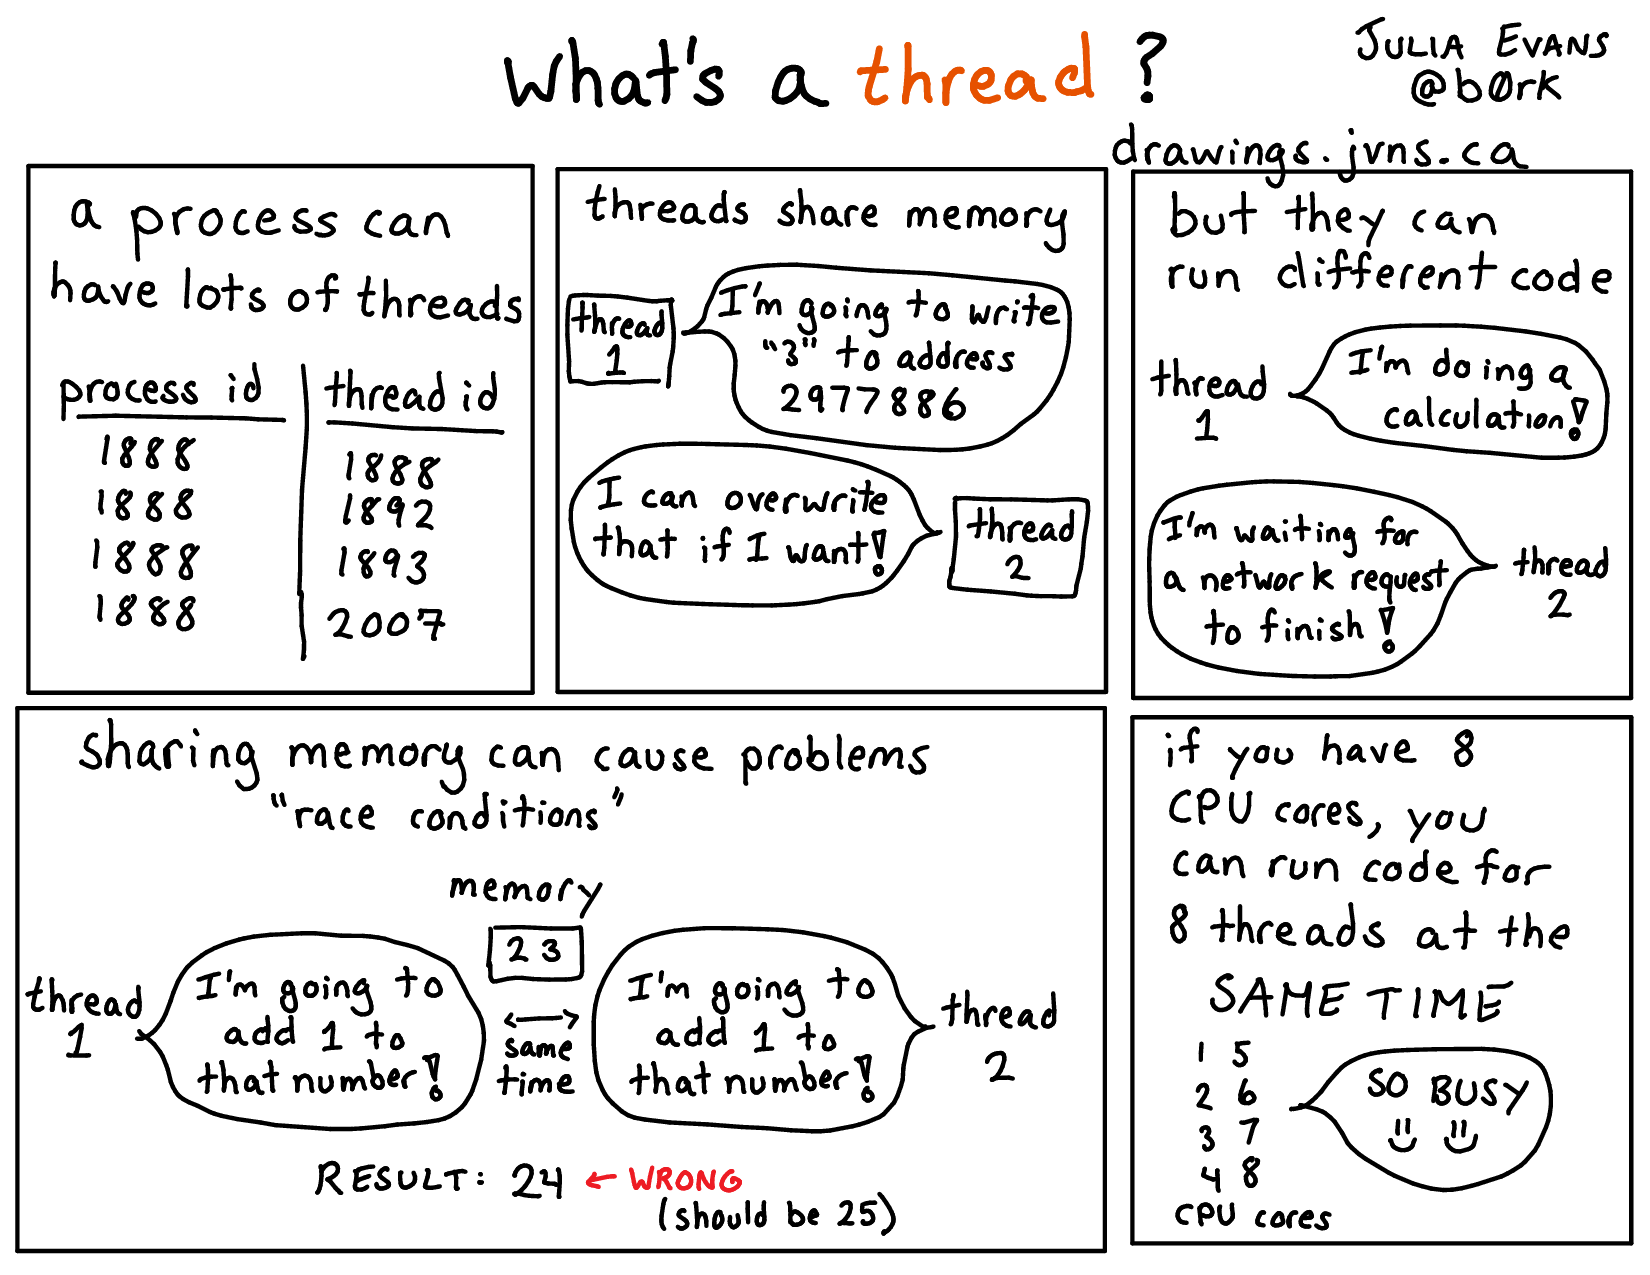 What's a thread ?
JULIA EVANS
@b0rk
drawings.jvns.ca
a process can
have lots of threads
process id thread id
1888 1888
1888 1892
1888 1893
1888 2007
threads share memory
thread
1
I'm going to write
"3" to address
2977886
I can overwrite
that if I want!
thread
2
but they can
run different code
thread
1
I'm doing a
calculation!
I'm waiting for
a network request
to finish!
thread
2
sharing memory can cause problems
"race conditions"
memory
23
thread
1
I'm going to
add 1 to
that number!
↔
same
time
I'm going to
add 1 to
that number!
thread
2
RESULT: 24 ← WRONG
(should be 25)
if you have 8
CPU cores, you
can run code for
8 threads at the
SAME TIME
1 5
2 6
3 7
4 8
CPU cores
SO BUSY